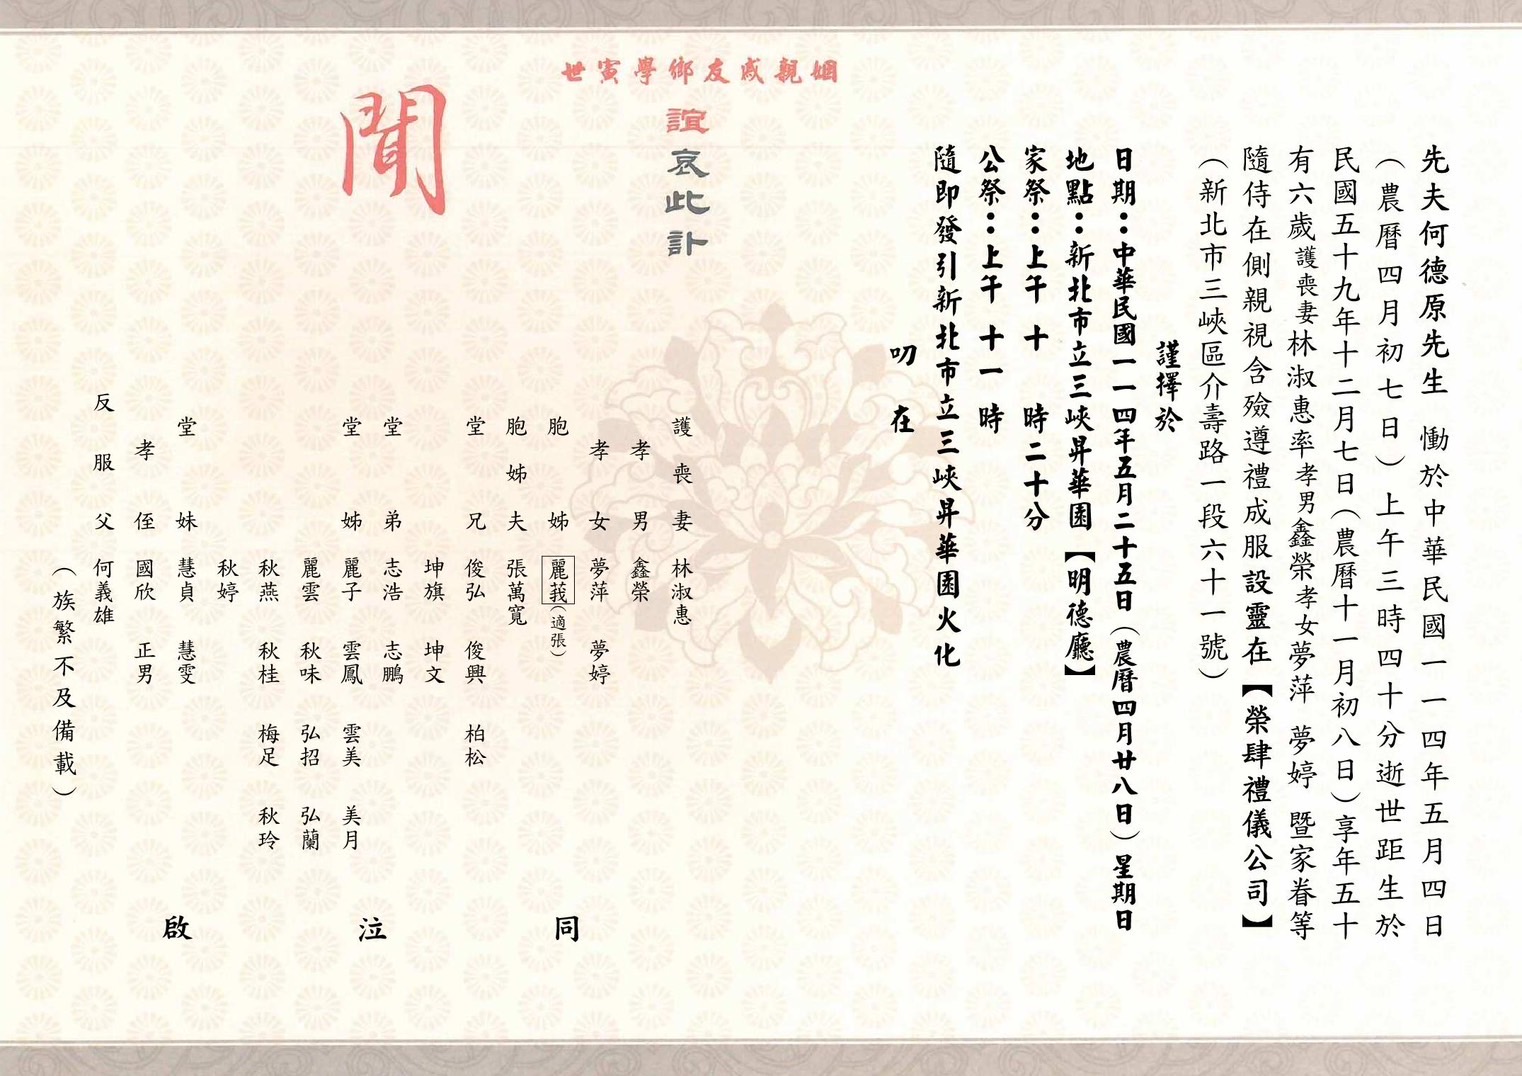 先夫何德原先生　慟於中華民國一一四年五月四日
（農曆四月初七日）上午三時四十分逝世距生於
民國五十九年十二月七日（農曆十一月初八日）享年五十
有六歲護喪妻林淑惠率孝男鑫榮孝女夢萍　夢婷　暨家眷等
隨侍在側親視含殮遵禮成服設靈在【榮肆禮儀公司】
（新北市三峽區介壽路一段六十一號）
謹擇於
日期：中華民國一一四年五月二十五日（農曆四月廿八日）星期日
地點：新北市立三峽昇華園【明德廳】
家祭：上午　十　時二十分
公祭：上午　十一　時
隨即發引新北市立三峽昇華園火化
叨　在
姻親戚友鄉學寅世
誼哀此訃
聞
護喪妻　林淑惠
孝男　鑫榮
孝女　夢萍　夢婷
胞姊　麗莪（適張）
胞姊夫　張萬寬
堂兄　俊弘　俊興　柏松
坤旗　坤文
堂弟　志浩　志鵬
堂姊　麗子　雲鳳　雲美　美月
麗雲　秋味　弘招　弘蘭
秋燕　秋桂　梅足　秋玲
秋婷
堂妹　慧貞　慧雯
孝侄　國欣　正男
反服父　何義雄
（族繁不及備載）
同　泣　啟